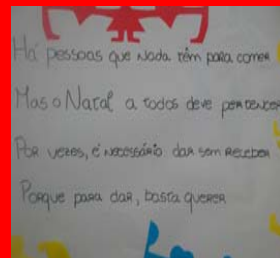 Há pessoas que nada têm para comer
Mas o Natal a todos deve pertencer
Por vezes, é necessário dar sem receber
Porque para dar, basta querer